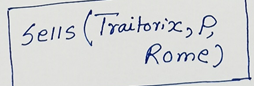 Sells (Traitorix, P,
Rome)